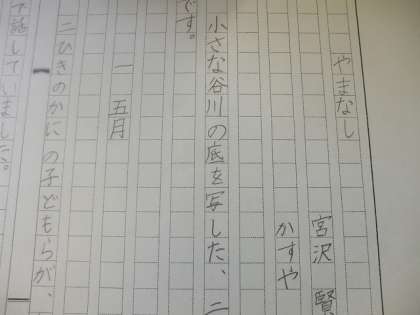 やまなし
宮沢 賢
かすや
小さな谷川の底を写した、二
です。
一 五月
二ひきのかにの子どもらが、
て話していました。